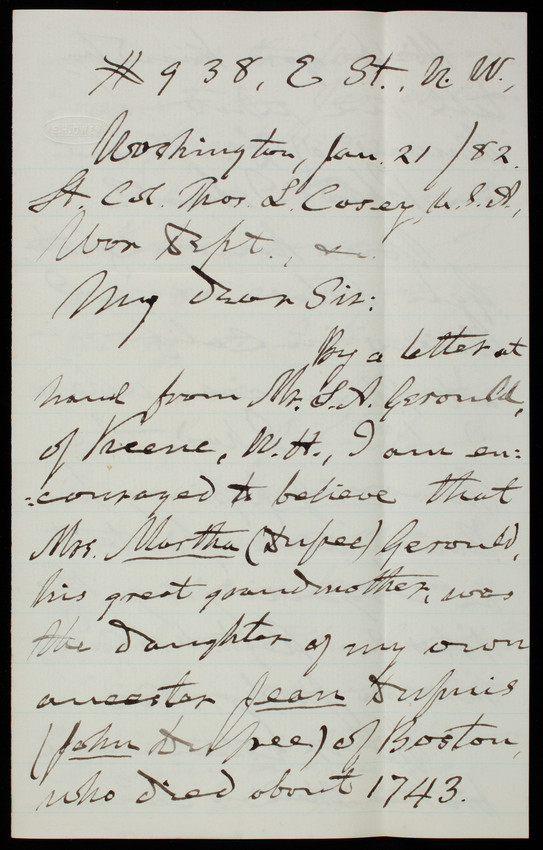 # 938, E St., N. W.,
Washington, Jan. 21/82.
Lt. Col. Thos. L. Casey, U.S.A.,
War Dept., &c.
My dear Sir:
By a letter at
hand from Mr. S.A. Gerould,
of Keene, N.H., I am en:
:couraged to believe that
Mrs. Martha (Dupee) Gerould,
his great grandmother, was
the daughter of my own
ancestor Jean Dupuis
(John Dupee) of Boston,
who died about 1743.